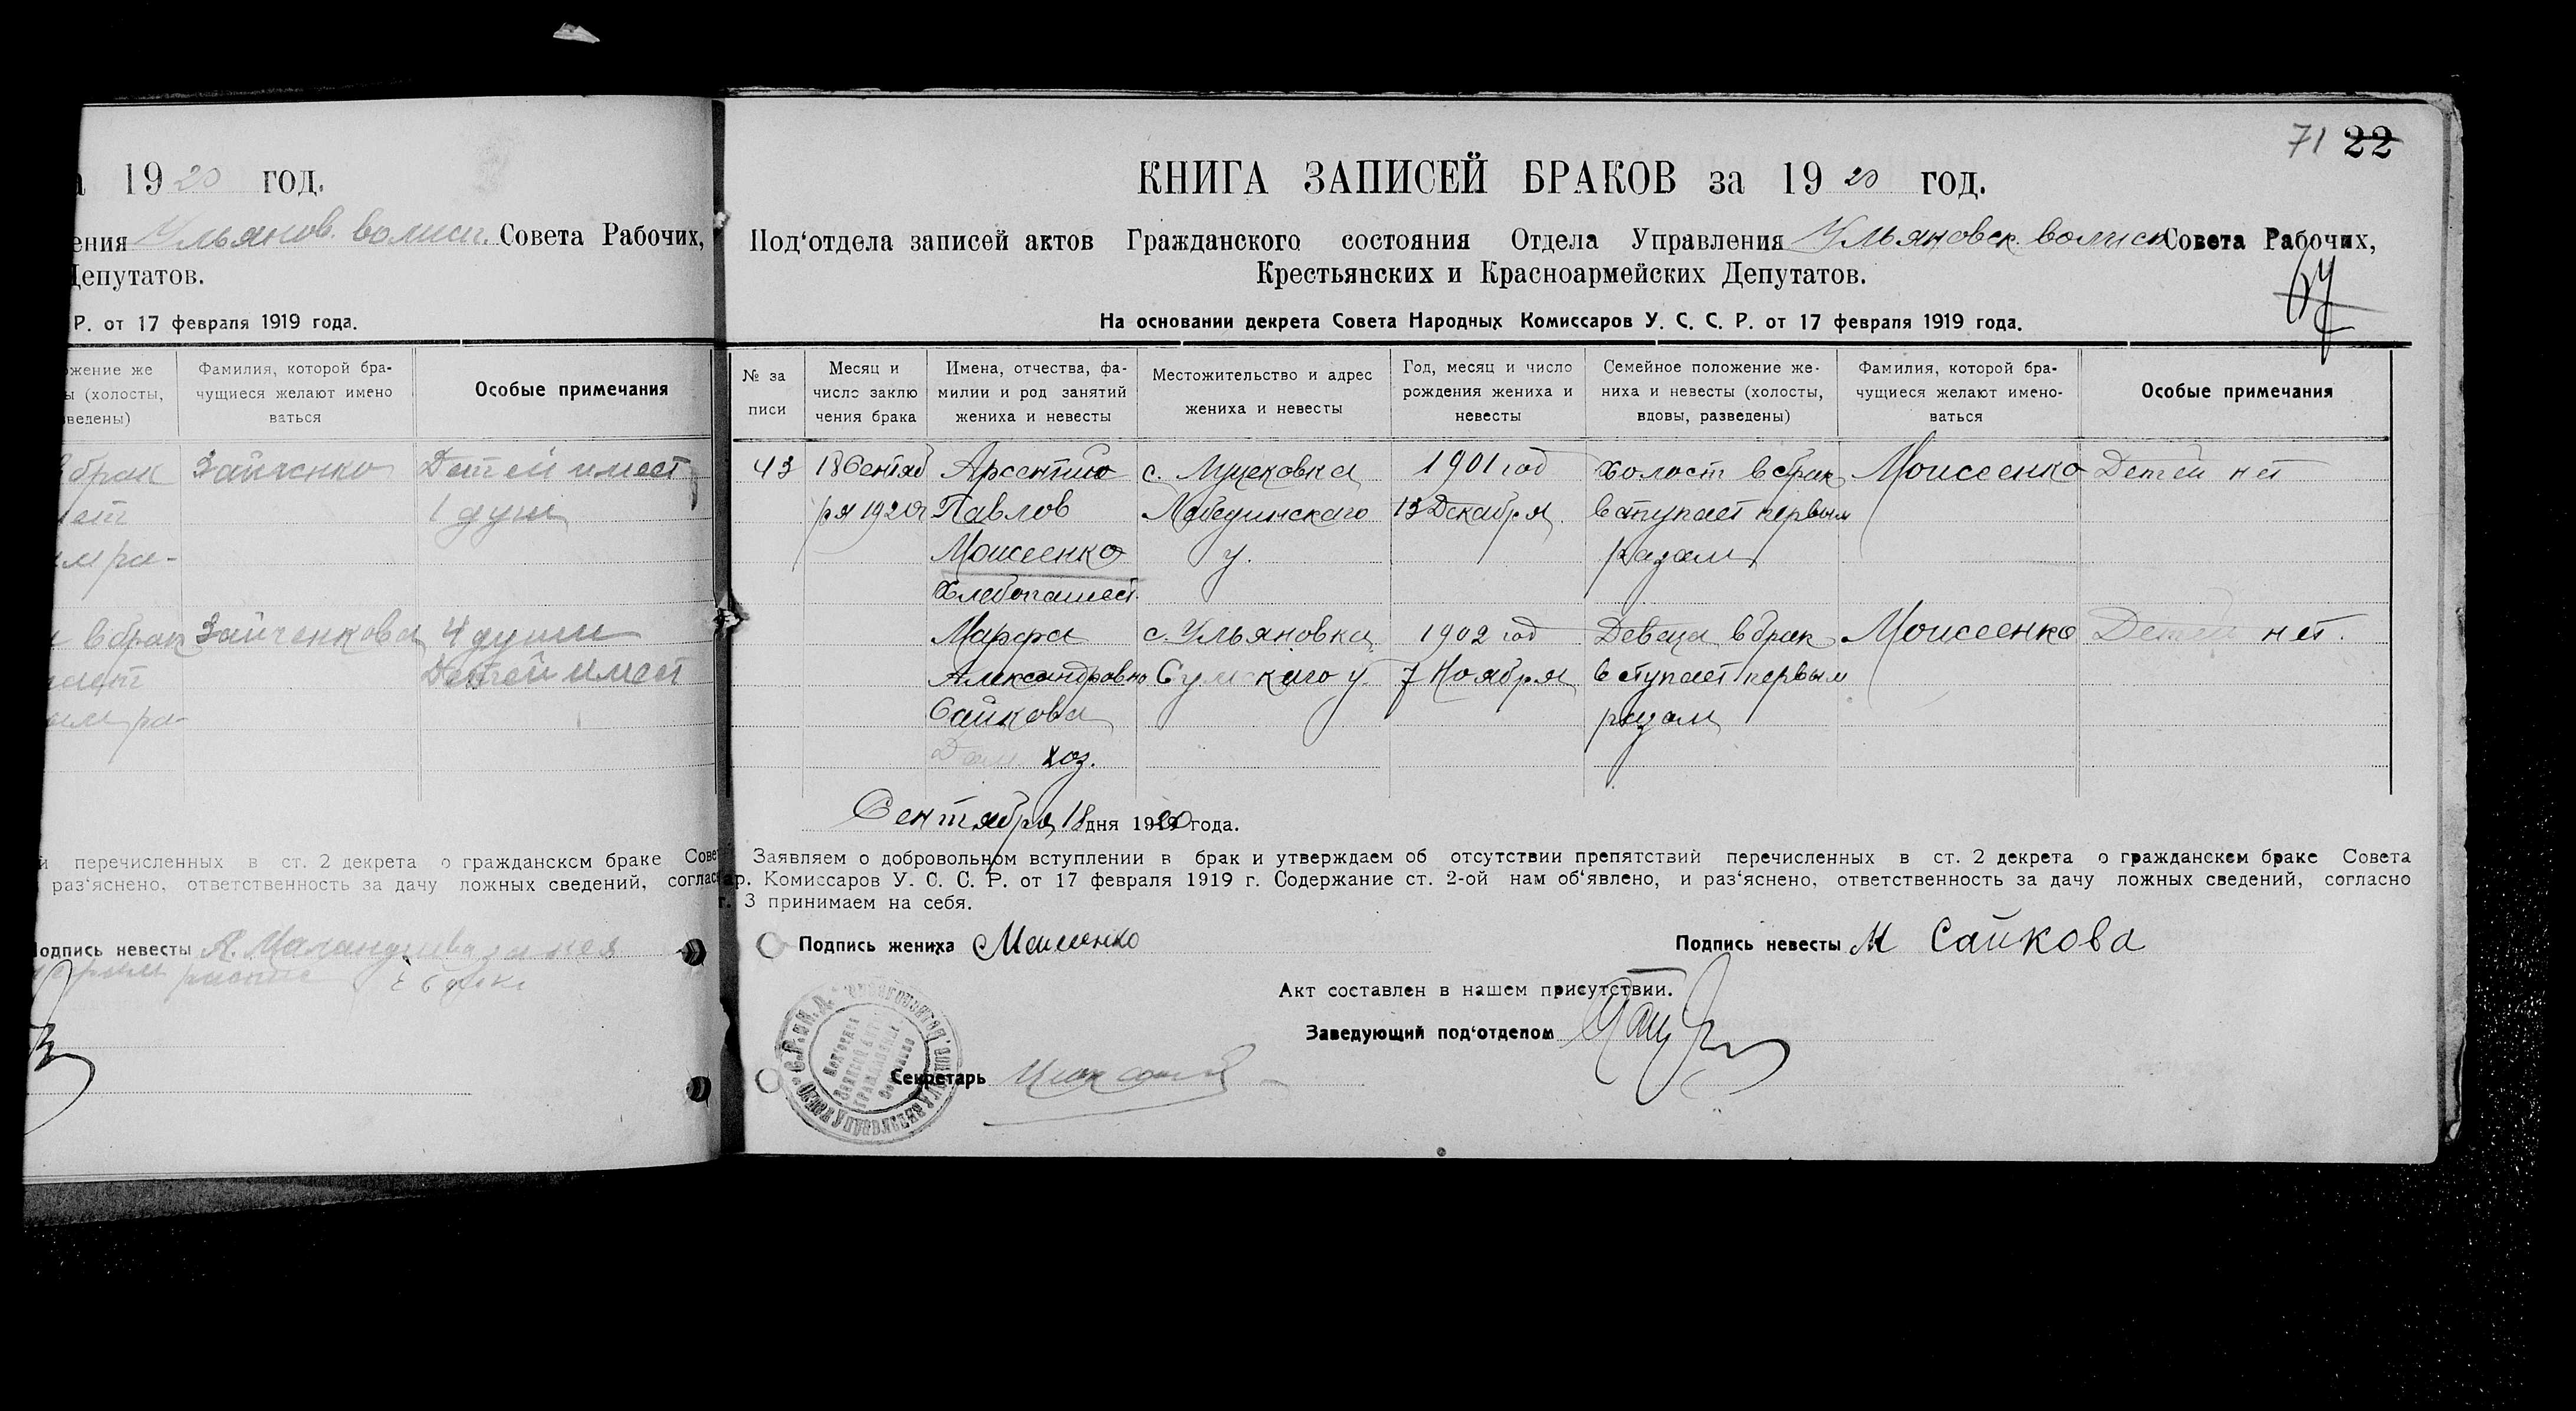 1920 год.
ения Ульянов. волисп. Совета Рабочих,
Депутатов.
Р. от 17 февраля 1919 года.
жение же
ы (холосты,
ведены)
Фамилия, которой бра-
чущиеся желают имено
ваться
Особые примечания
брак Зайченко Детей имеет
1 душ
ра-
в брак Зайченкова 4 души
Детей имеет
ра-
й перечисленных в ст. 2 декрета о гражданском браке Сове
раз‘яснено, ответственность за дачу ложных сведений, соглас
Подпись невесты А.
71 22
КНИГА ЗАПИСЕЙ БРАКОВ за 1920 год.
Под‘отдела записей актов Гражданского состояния Отдела Управления Ульяновск. волиск Совета Рабочих,
Крестьянских и Красноармейских Депутатов.
На основании декрета Совета Народных Комиссаров У. С. С. Р. от 17 февраля 1919 года.
№ за
писи
Месяц и
число заклю
чения брака
Имена, отчества, фа-
милии и род занятий
жениха и невесты
Местожительство и адрес
жениха и невесты
Год, месяц и число
рождения жениха и
невесты
Семейное положение же-
ниха и невесты (холосты,
вдовы, разведены)
Фамилия, которой бра-
чущиеся желают имено-
ваться
Особые примечания
43 18 Сентяб Арсентий с. 1901 год Холост в брак Моисеенко Детей нет
ря 1920 Павлов Лебединскаго 13 Декабря вступает первым
Моисеенко у. разом
Хлебопашест.
Марфа с. Ульяновка 1902 год Девица в брак Моисеенко Детей нет.
Александровно Сумскаго у. 7 Ноября вступает первым
Сайкова разом
Дом. хоз.
Сентября 18 дня 1920 года.
Заявляем о добровольном вступлении в брак и утверждаем об отсутствии препятствий перечисленных в ст. 2 декрета о гражданском браке Совета
ар. Комиссаров У. С. С. Р. от 17 февраля 1919 г. Содержание ст. 2-ой нам об‘явлено, и раз‘яснено, ответственность за дачу ложных сведений, согласно
г. 3 принимаем на себя.
Подпись жениха Моисеенко
Подпись невесты М Сайкова
Акт составлен в нашем присутствии.
Заведующий под‘отделом
Секретарь